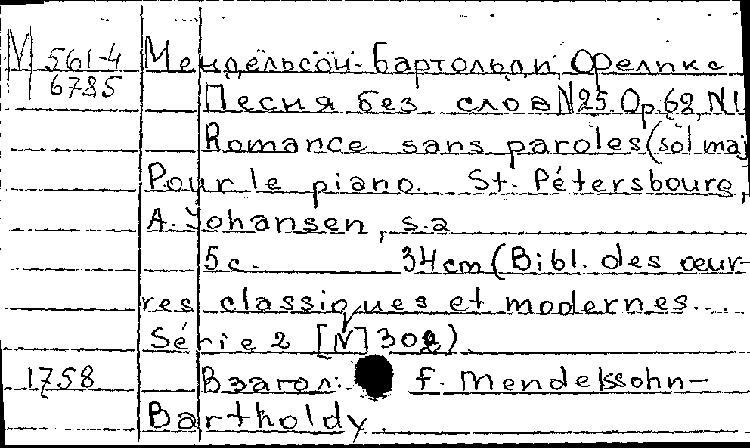 М 561-4 Мендельсон-Бартольди, Феликс
6785 Песня без слов N25. Op.62, N1
Romance sans paroles (sol maj
Pour le piano. St. Pétersbourg,
A. Johansen, s.a
5 c. 34 cm (Bibl. des œuv-
res classiques et modernes...
Série 2 [N] 302).
1758 В загол: F. Mendelssohn-
Bartholdy.